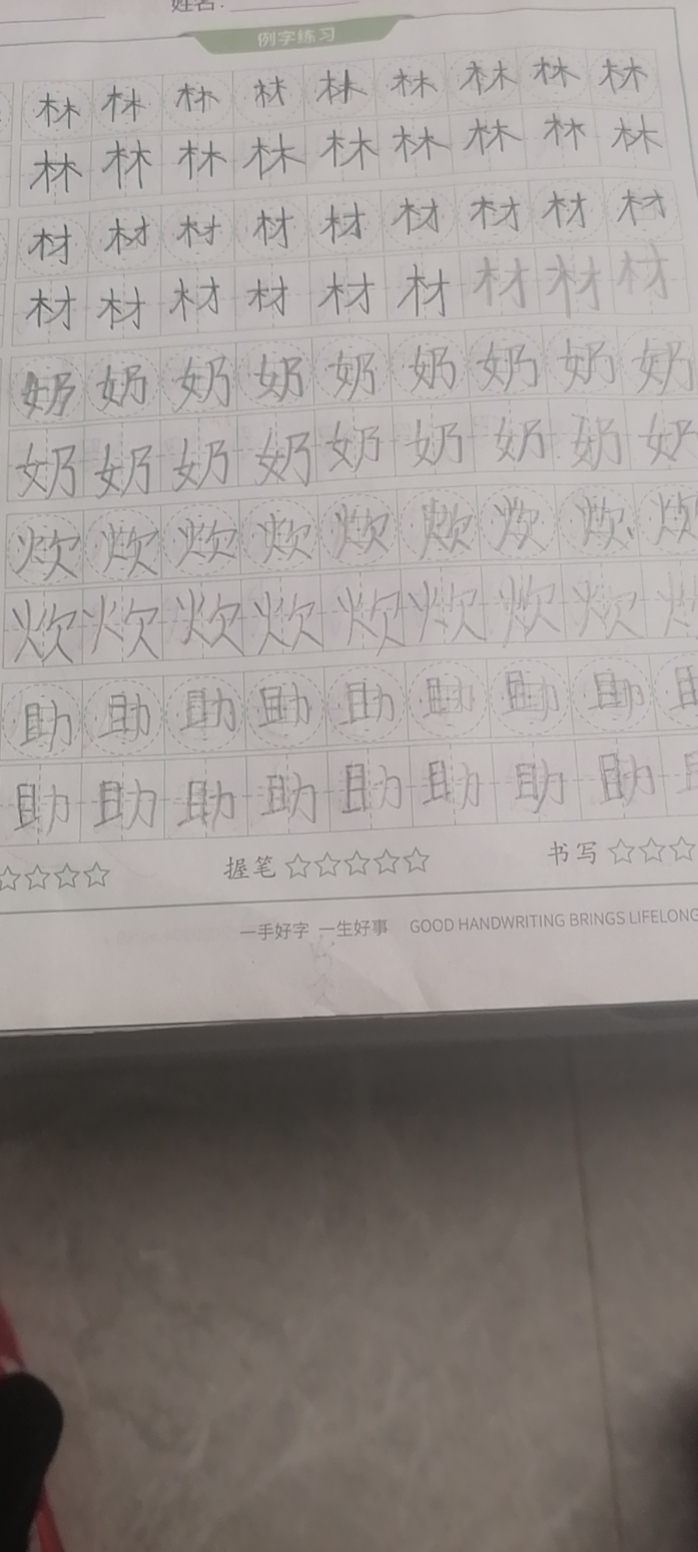 姓名:
例字练习
林 林 林 林 林 林 林 林 林
林 林 林 林 林 林 林 林 林
材 材 材 材 材 材 材 材 材
材 材 材 材 材 材 材 材 材
奶 奶 奶 奶 奶 奶 奶 奶 奶
奶 奶 奶 奶 奶 奶 奶 奶 奶
炊 炊 炊 炊 炊 炊 炊 炊 炊
炊 炊 炊 炊 炊 炊 炊 炊
助 助 助 助 助 助 助 助
助 助 助 助 助 助 助 助
握笔 书写
一手好字 一生好事 GOOD HANDWRITING BRINGS LIFELONG